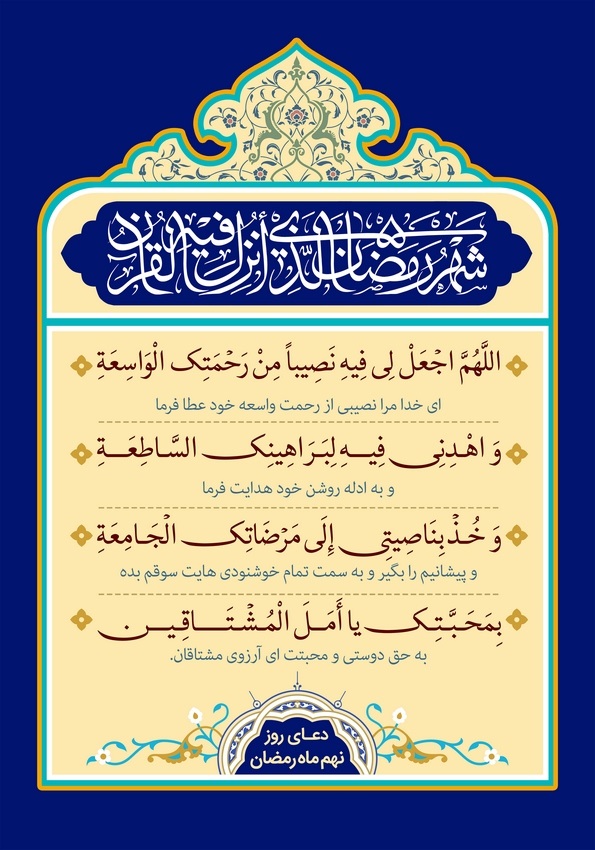 شهر رمضان الذي أنزل فيه القرآن
اللَّهُمَّ اجْعَلْ لِی فِیهِ نَصِیباً مِنْ رَحْمَتِک الْوَاسِعَةِ
ای خدا مرا نصیبی از رحمت واسعه خود عطا فرما
وَ اهْدِنِی فِیهِ لِبَرَاهِینِک السَّاطِعَةِ
و به ادله روشن خود هدایت فرما
وَ خُذْ بِنَاصِیتِی إِلَی مَرْضَاتِک الْجَامِعَةِ
و پیشانیم را بگیر و به سمت تمام خوشنودی هایت سوقم بده
بِمَحَبَّتِک یا أَمَلَ الْمُشْتَاقِین
به حق دوستی و محبتت ای آرزوی مشتاقان.
دعـای روز
نهم ماه رمضان